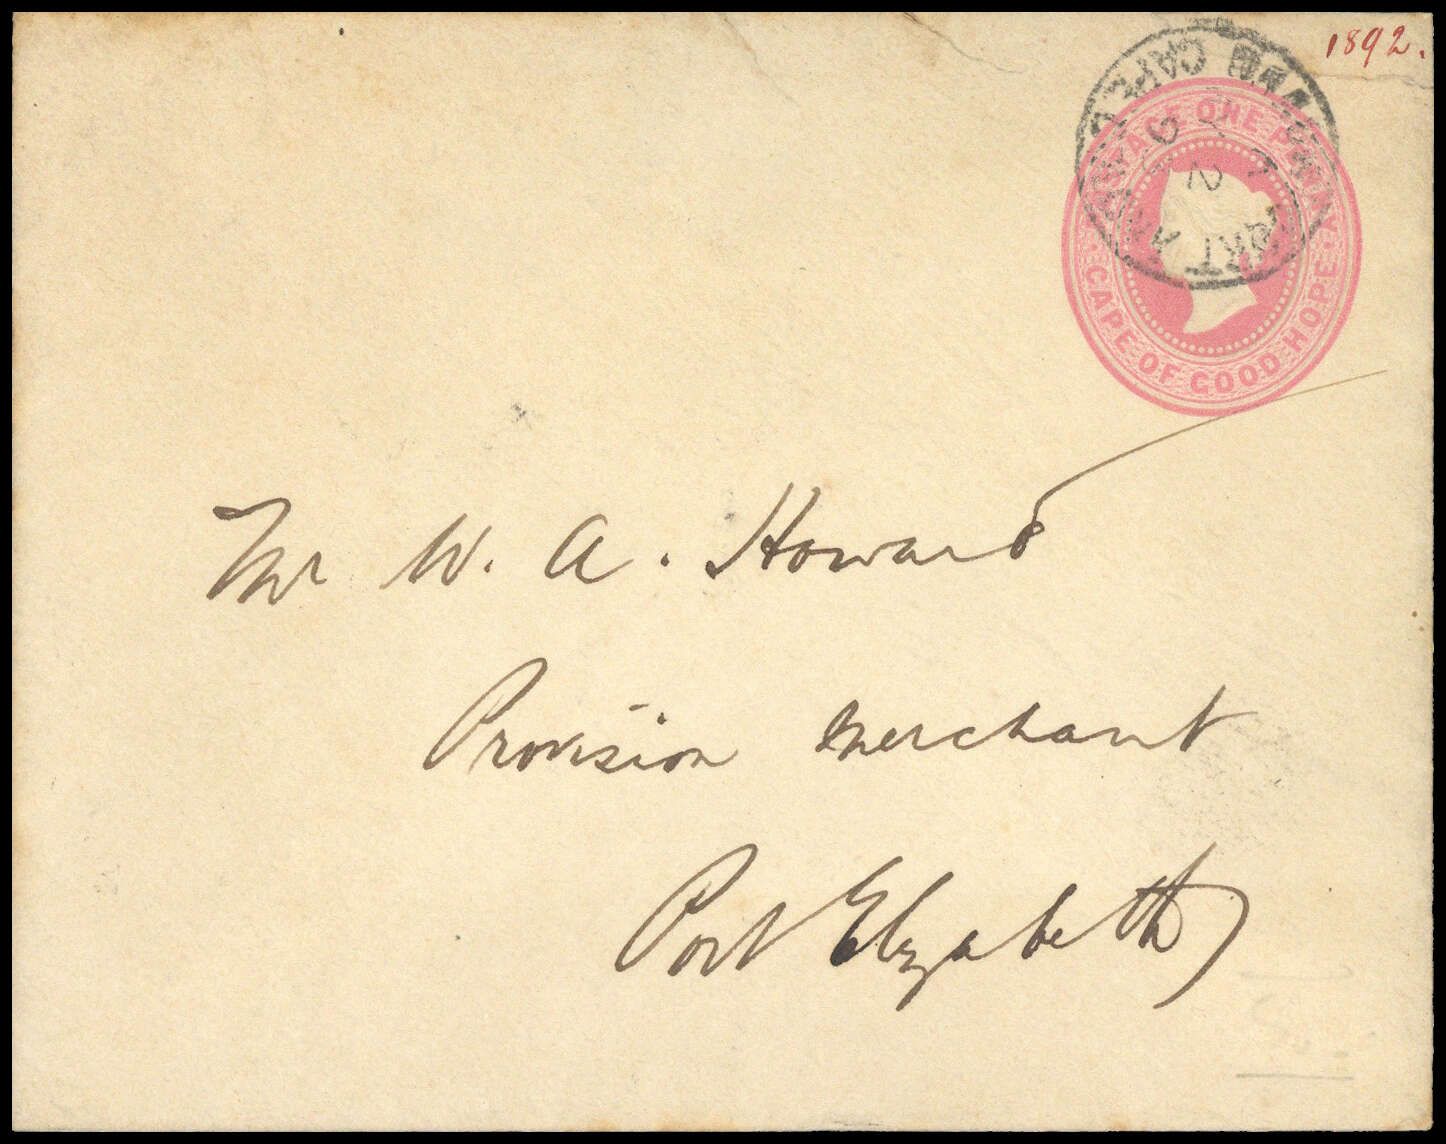 1892.
POSTAGE ONE PENNY
CAPE OF GOOD HOPE
Mr W. A. Howard
Provision Merchant
Port Elizabeth